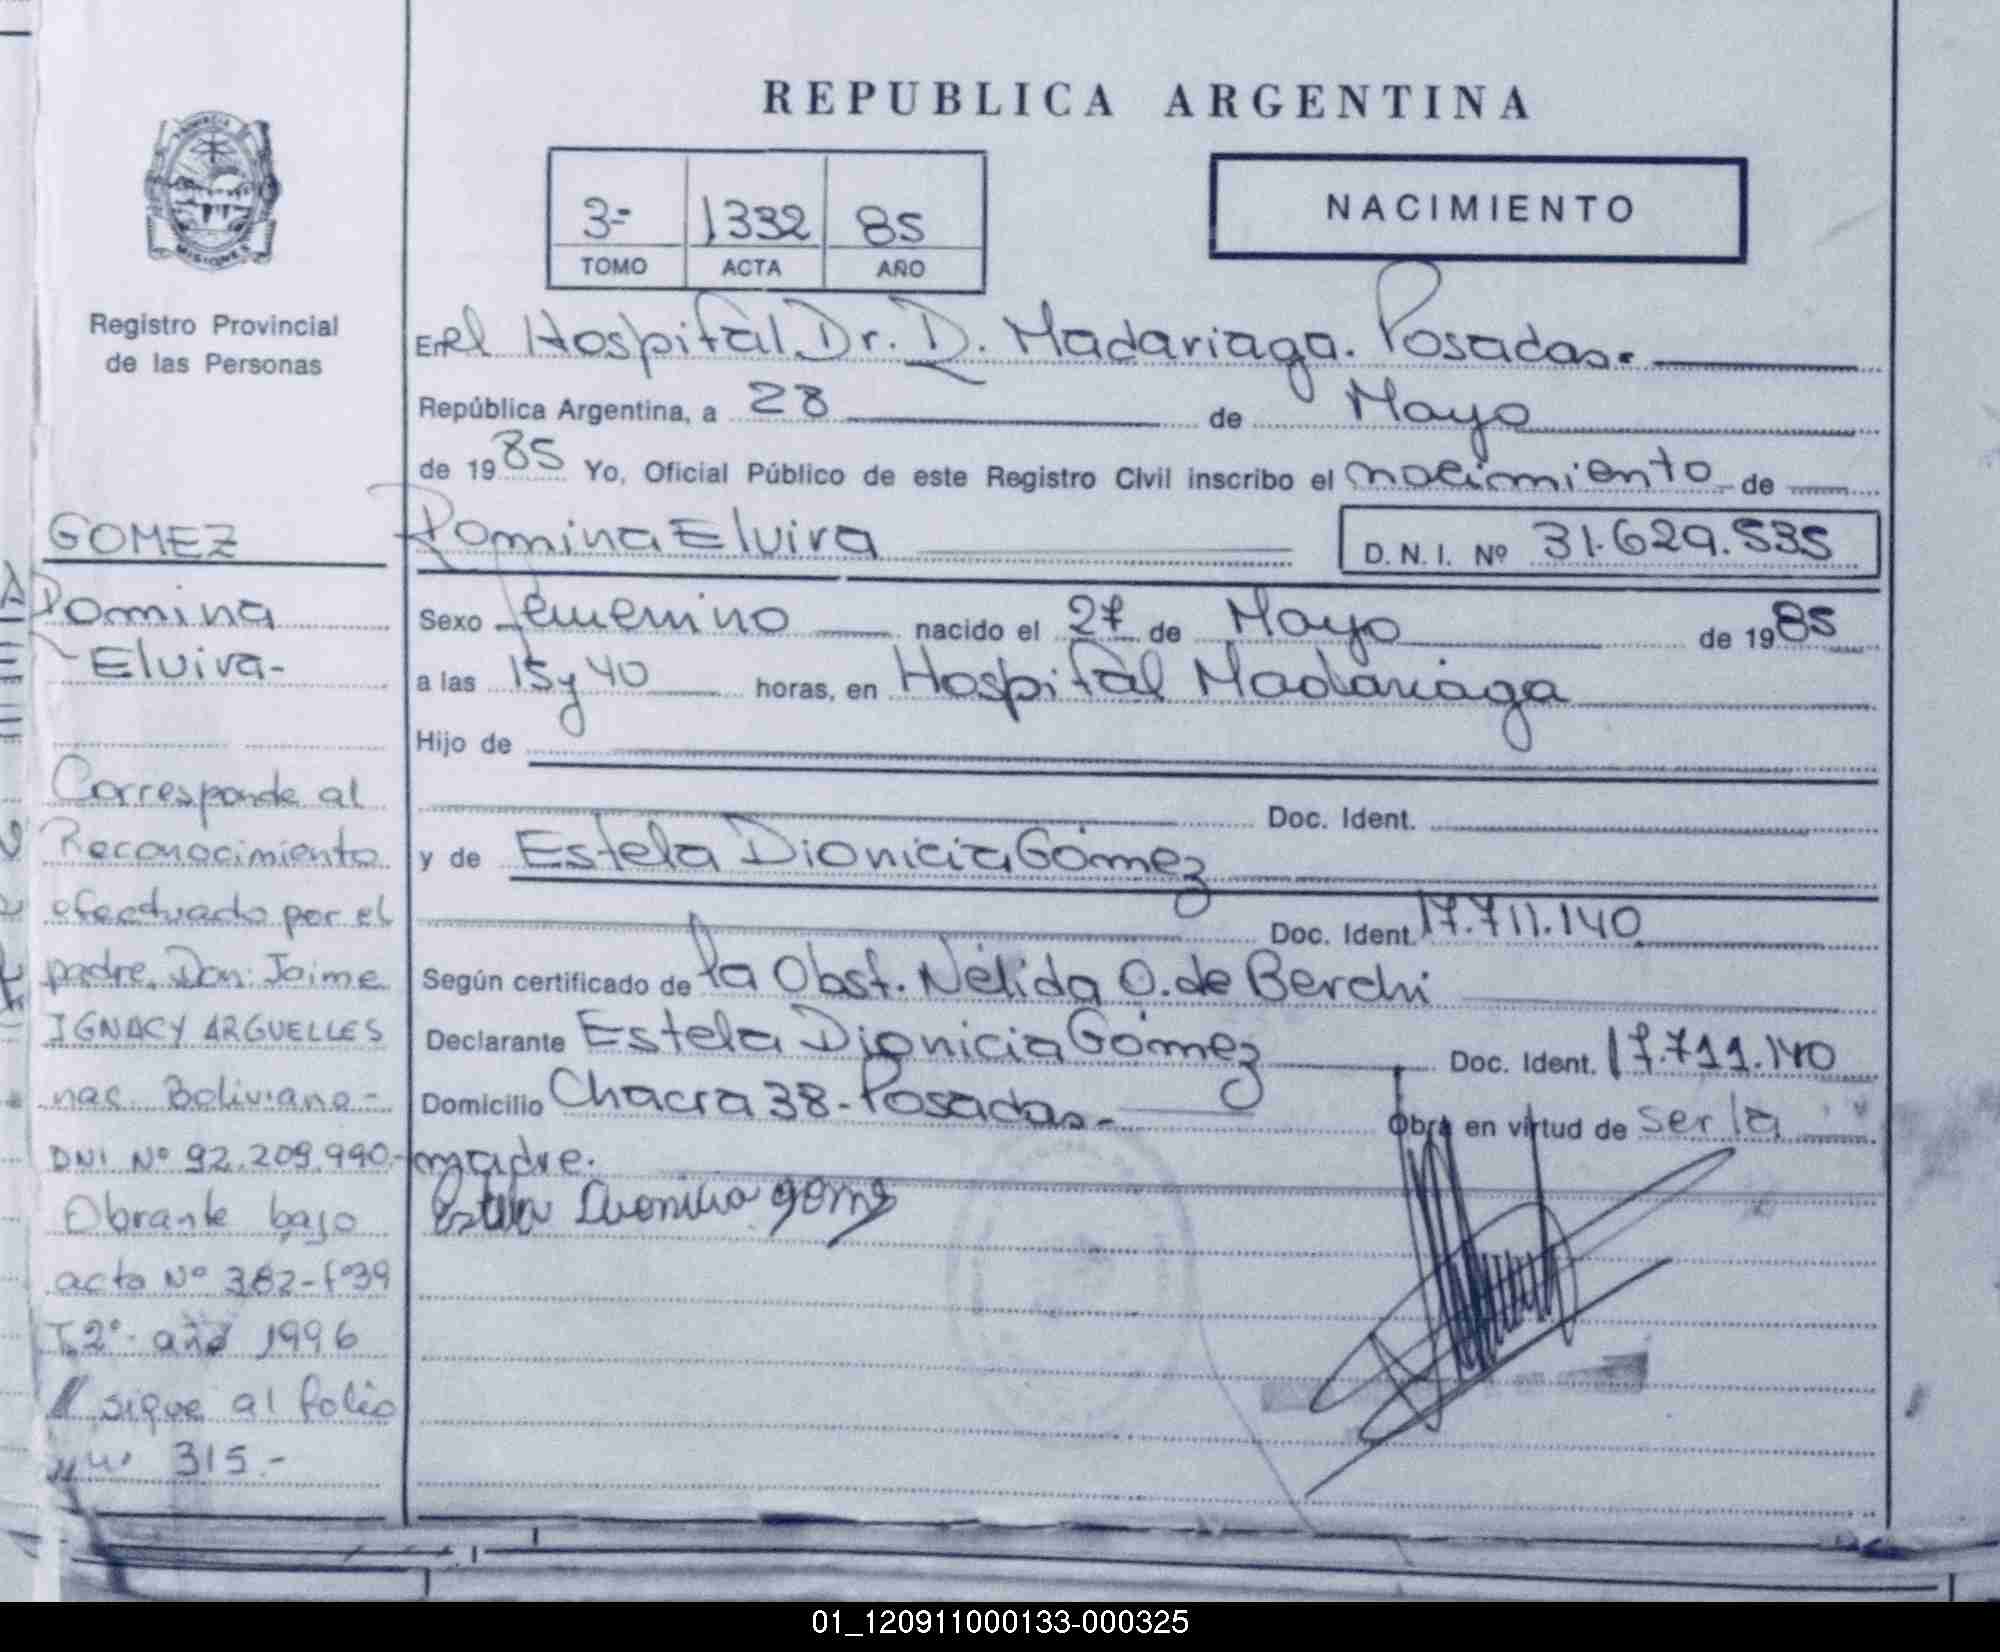 REPUBLICA ARGENTINA
3=
1332
85
TOMO
ACTA
AÑO
NACIMIENTO
PROVINCIA
MISIONES
Registro Provincial
de las Personas
GOMEZ
Romina
Elvira-
Corresponde al
Reconocimiento
efectuado por el
padre. Don: Jaime
IGNACY ARGUELLES
nac. Boliviano-
DNI Nº 92.209.990.-
Obrante bajo
acta Nº 382-fº39
T.2º- año 1996
// sigue al folio
315.-
En el Hospital Dr. D. Madariaga. Posadas.
República Argentina, a 28 de Mayo
de 1985 Yo, Oficial Público de este Registro Civil inscribo el nacimiento de
Romina Elvira D.N.I. Nº 31.629.535
Sexo femenino nacido el 27 de Mayo de 1985
a las 15 y 40 horas, en Hospital Madariaga
Hijo de
Doc. Ident.
y de Estela Dionicia Gómez
Doc. Ident. 17.711.140
Según certificado de la Obst. Nélida O. de Berchi
Declarante Estela Dionicia Gómez Doc. Ident. 17.711.140
Domicilio Chacra 38-Posadas.- Obra en virtud de ser la
madre.
Estela Dionicia gomez
01_120911000133-000325